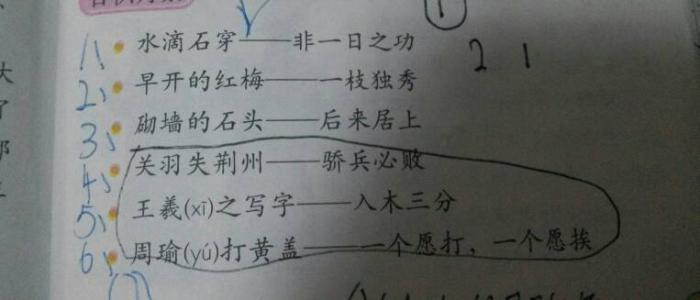 1、水滴石穿——非一日之功
2、早开的红梅——一枝独秀
3、砌墙的石头——后来居上
4、关羽失荆州——骄兵必败
5、王羲(xī)之写字——入木三分
6、周瑜(yú)打黄盖——一个愿打，一个愿挨
1
2 1
大
了